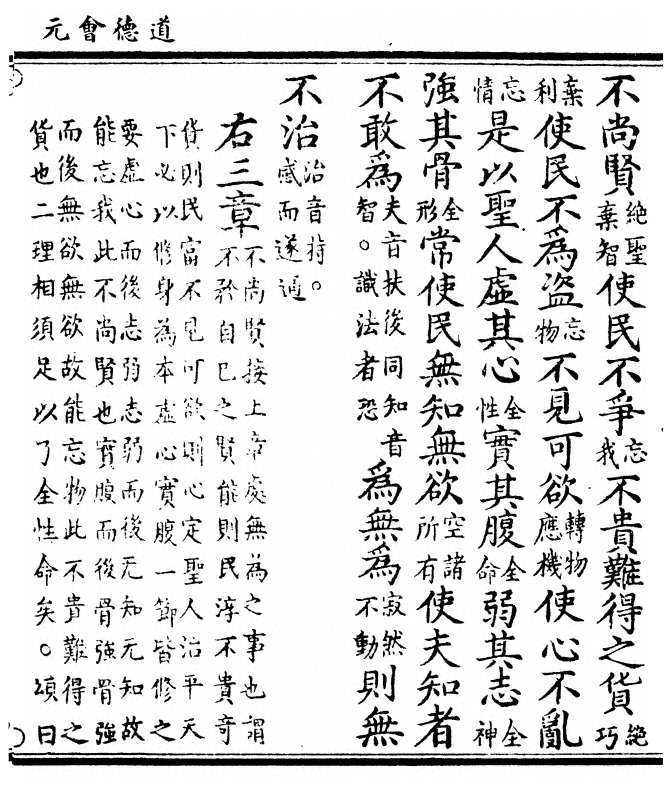 道德會元
不尚賢絕聖棄智使民不爭忘我不貴難得之貨絕巧
棄利使民不為盜忘物不見可欲轉物應機使心不亂
忘情是以聖人虛其心全性實其腹全命弱其志全神
強其骨全形常使民無知無欲空諸所有使夫知者
不敢為夫音扶後同知音智。識法者恐為無為寂然不動則無
不治治音持。感而遂通
右三章不尚賢接上章處無為之事也謂不矜自己之賢能則民淳不貴奇
貨則民富不見可欲則心定聖人治平天下必以修身為本虛心實腹一節皆修之
要虛心而後志弱志弱而後无知无知故能忘我此不尚賢也實腹而後骨強骨強
而後無欲無欲故能忘物此不貴難得之貨也二理相須足以了全性命矣。頌曰